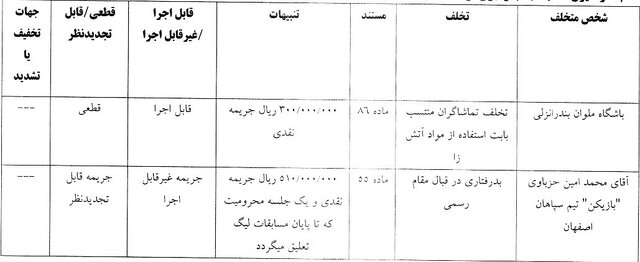 شخص متخلف
تخلف
مستند
تنبیهات
قابل اجرا
/غیرقابل اجرا
قطعی/قابل
تجدیدنظر
جهات
تخفیف
یا
تشدید
باشگاه ملوان بندرانزلی
تخلف تماشاگران منتسب
بابت استفاده از مواد آتش
زا
ماده ۸۶
۳۰۰/۰۰۰/۰۰۰ ریال جریمه
نقدی
قابل اجرا
قطعی
---
آقای محمد امین حزباوی
"بازیکن" تیم سپاهان
اصفهان
بدرفتاری در قبال مقام
رسمی
ماده ۵۵
۵۱۰/۰۰۰/۰۰۰ ریال جریمه
نقدی و یک جلسه محرومیت
که تا پایان مسابقات لیگ
تعلیق میگردد
جریمه غیرقابل
اجرا
جریمه قابل
تجدیدنظر
---